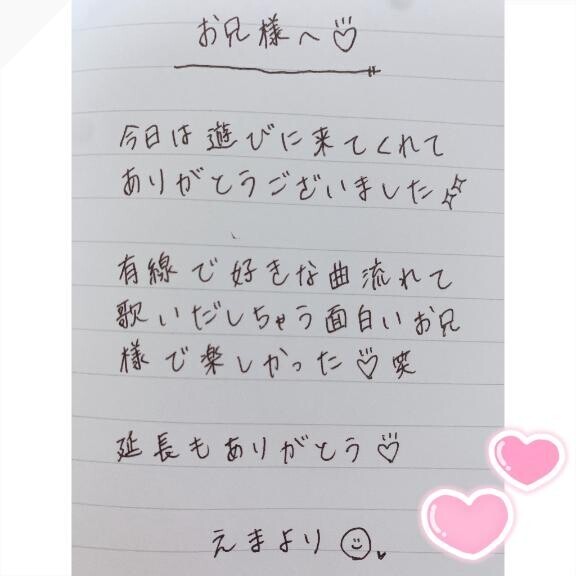 お兄様へ♡
今日は遊びに来てくれて
ありがとうございました✨
有線で好きな曲流れて
歌いだしちゃう面白いお兄
様で楽しかった♡笑
延長もありがとう♡
えまより☺